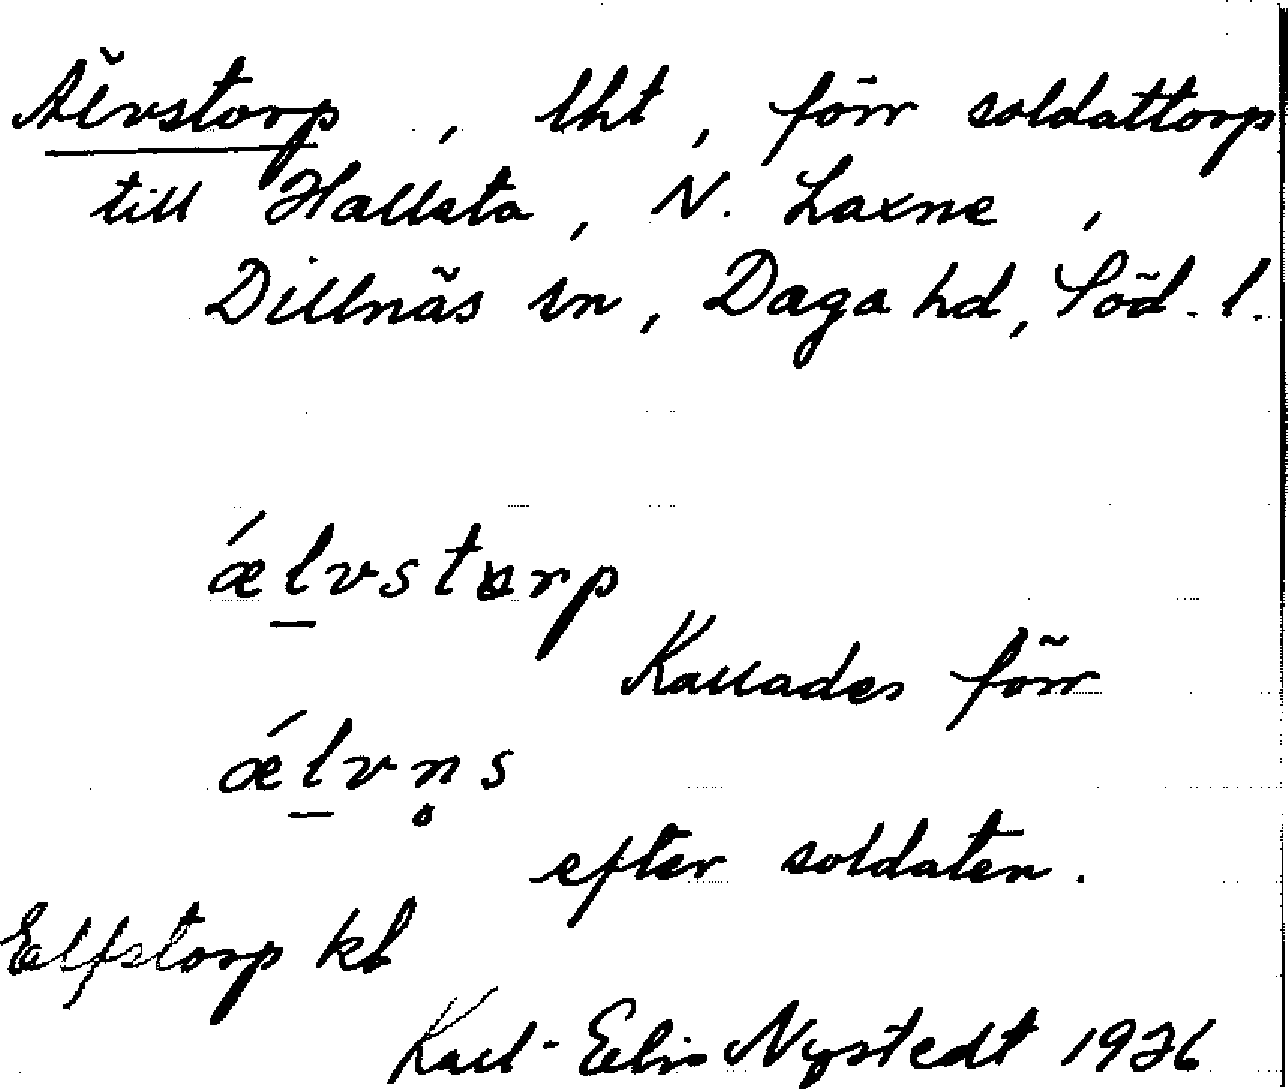 Älvstorp, lht, förr soldattorp
till Hallsta, N. Laxne,
Dillnäs sn, Daga hd, Söd. l.
ǽl̠vstɑrp
Kallades förr
ǽl̠vn̥s
efter soldaten.
Elfstorp kb
Karl-Elis Nystedt 1936